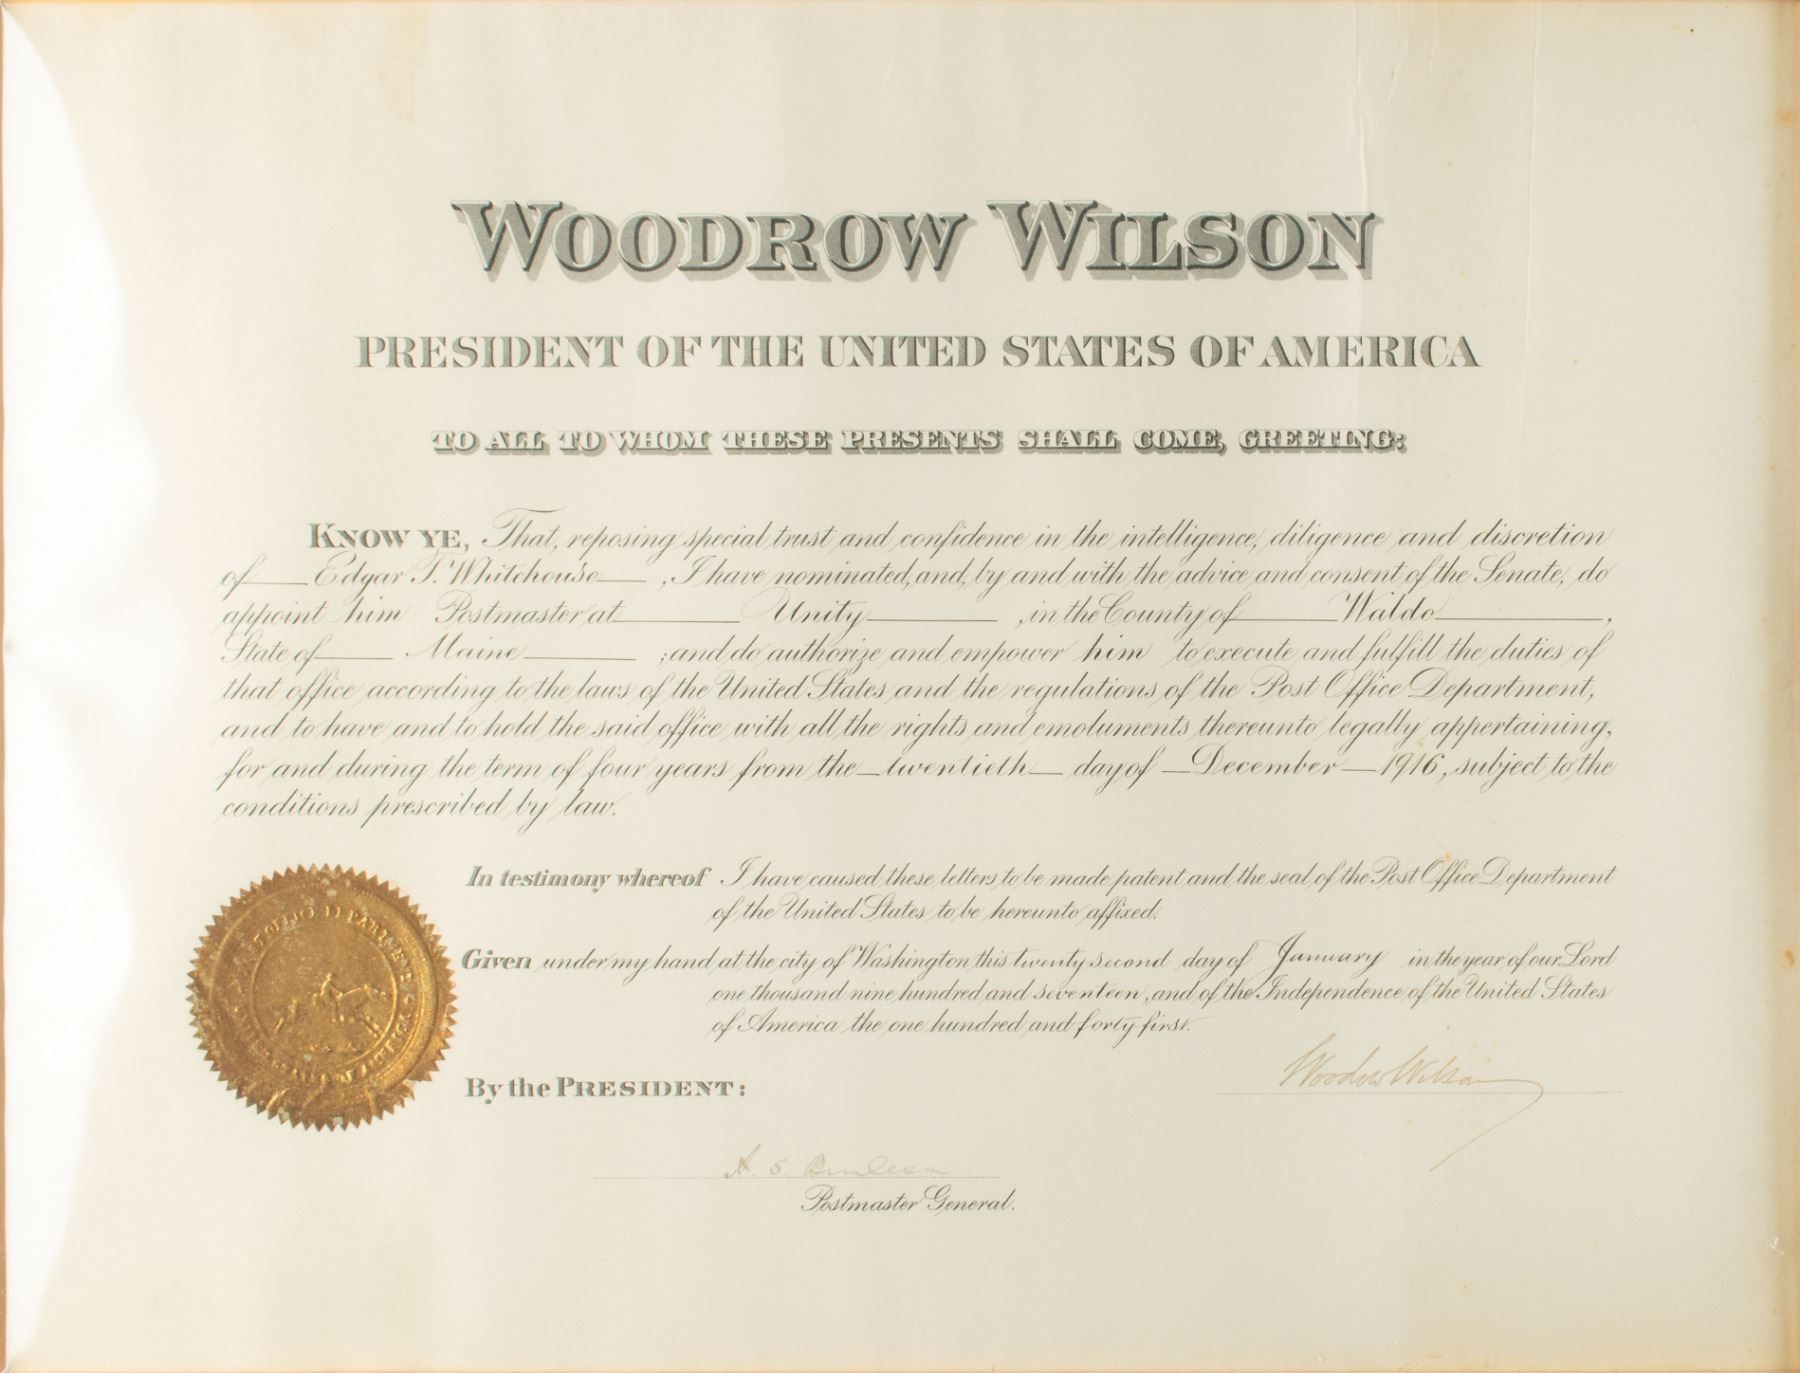 WOODROW WILSON
PRESIDENT OF THE UNITED STATES OF AMERICA
TO ALL TO WHOM THESE PRESENTS SHALL COME, GREETING:
KNOW YE, That, reposing special trust and confidence in the intelligence, diligence and discretion
of Edgar T. Whitehouse, I have nominated, and, by and with the advice and consent of the Senate, do
appoint him Postmaster at Unity, in the County of Waldo,
State of Maine; and do authorize and empower him to execute and fulfill the duties of
that office according to the laws of the United States and the regulations of the Post Office Department,
and to have and to hold the said office with all the rights and emoluments thereunto legally appertaining,
for and during the term of four years from the twentieth day of December 1916, subject to the
conditions prescribed by law.
In testimony whereof I have caused these letters to be made patent and the seal of the Post Office Department
of the United States to be hereunto affixed.
Given under my hand at the city of Washington this twenty second day of January in the year of our Lord
one thousand nine hundred and seventeen, and of the Independence of the United States
of America the one hundred and forty-first.
By the PRESIDENT:
Woodrow Wilson
A. S. Burleson
Postmaster General.